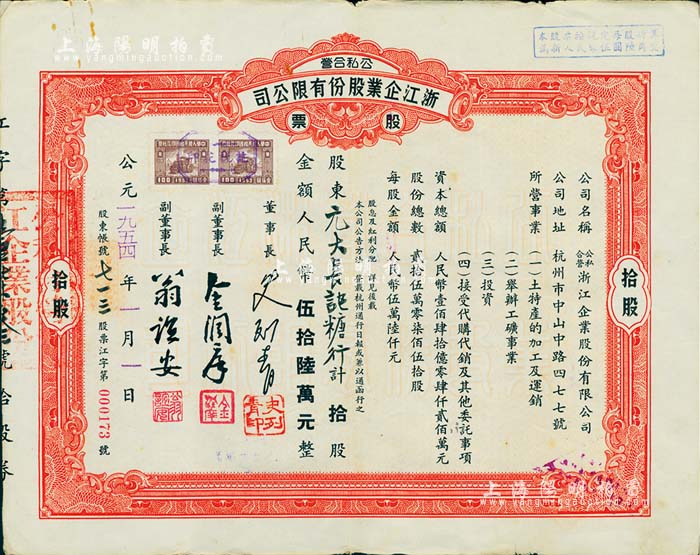 公私合營
浙江企業股份有限公司
股票
公司名稱 公私合營 浙江企業股份有限公司
公司地址 杭州市中山中路四七七號
所營事業 (一)土持產的加工及運銷
(二)舉辦工礦事業
(三)投資
(四)接受代購代銷及其他委託事項
資本總額 人民幣壹佰肆拾億零肆仟貳佰萬元
股份總數 貳拾伍萬零柒佰伍拾股
每股金額 人民幣伍萬陸仟元
股息及紅利分配 詳見後載
本公司公告方法 登載杭州通行日報或兼以通函行之
股東 元大長記糖行 計 拾股
金額 人民幣 伍拾陸萬元整
董事長
副董事長 金潤庠
副董事長
公元一九五四年一月一日
股東帳號 七一三 股票江字第 000173 號
拾股
拾股
100
100
上海陽明拍賣
www.yangmingauction.com
上海陽明拍賣
www.yangmingauction.com